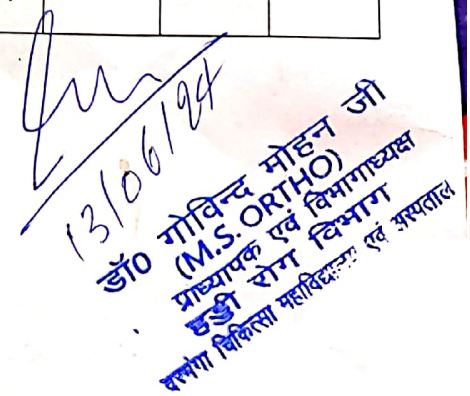 13/06/24
डॉ० गोविन्द मोहन जी
(M.S. ORTHO)
प्राध्यापक एवं विभागाध्यक्ष
हड्डी रोग विभाग
दरभंगा चिकित्सा महाविद्यालय एवं अस्पताल